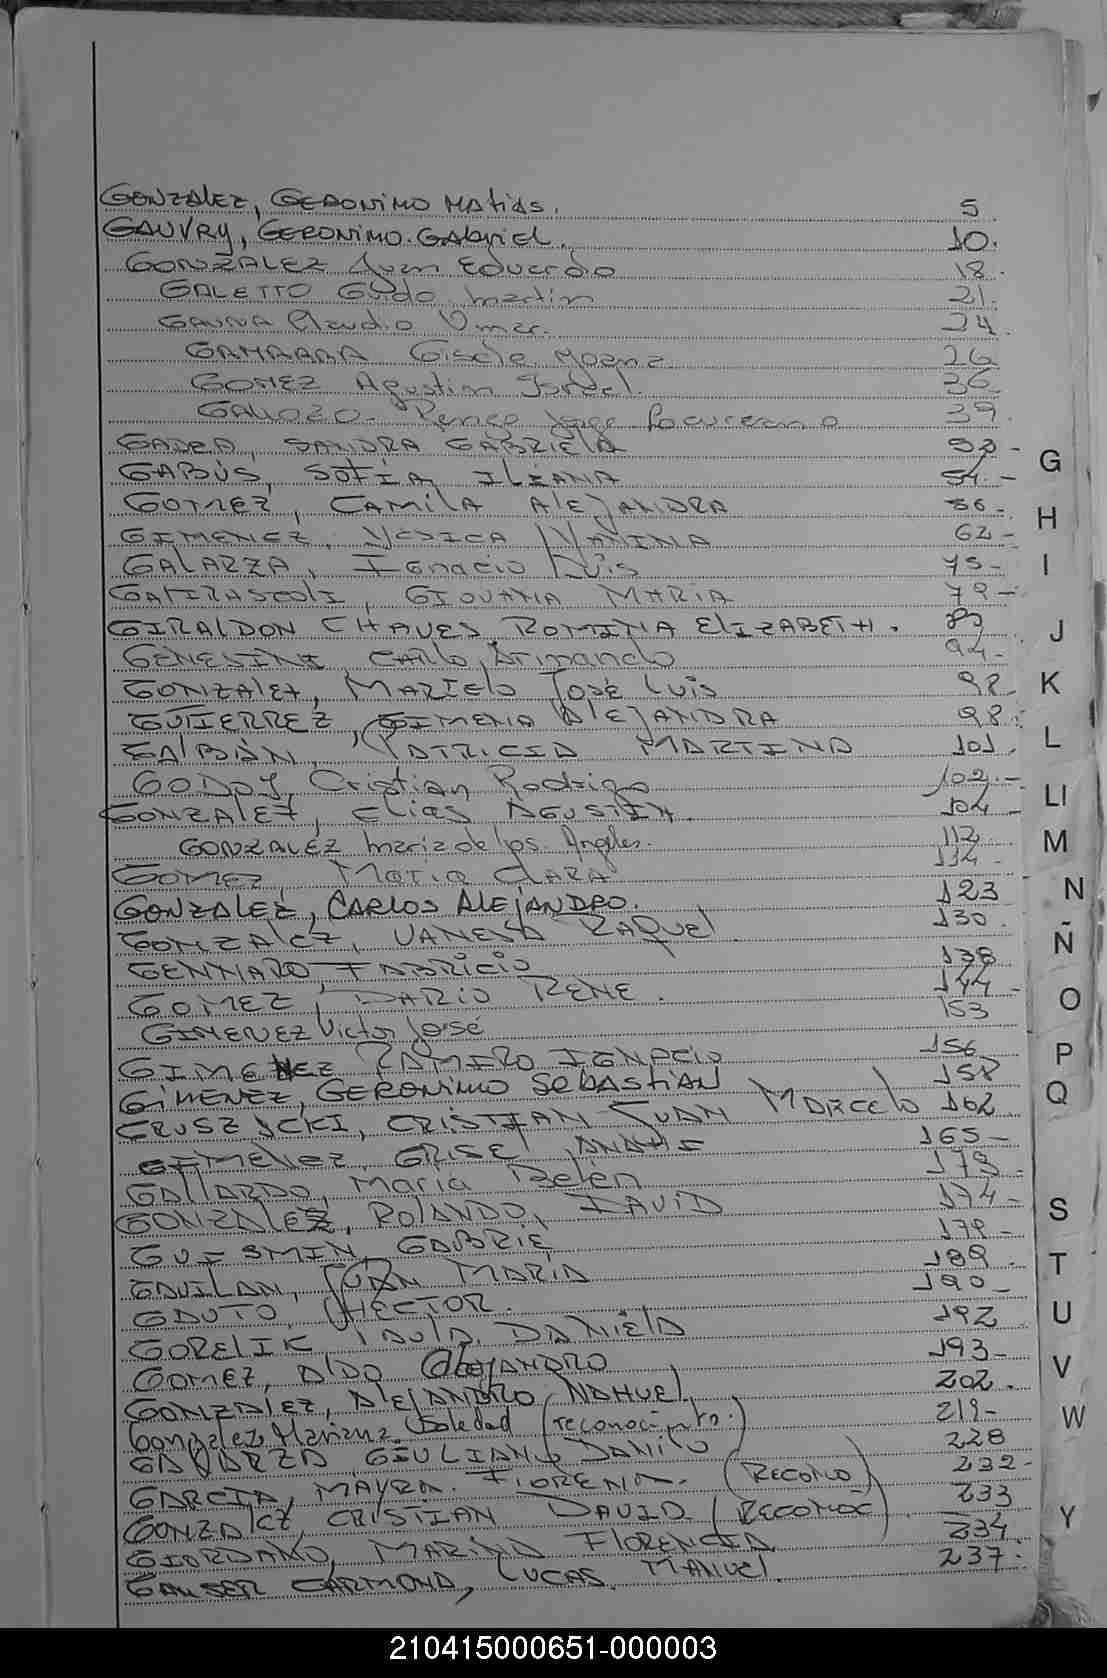 GONZALEZ, GERONIMO MATIAS. 5
GAUVRY, GERONIMO. GAbriEL. 10.
GONZALEZ Juan Eduardo 18.
GALETTO Guido martin 21.
GAUNA Claudio Omar. 24.
GAMARRA Gisela 26
GOMEZ Agustin Israel. 36
GALLOZO 39.
GADEA, SANDRA GABRIELA
GABÚS, SOFIA ILIANA 54.-
GOMEZ, CAMILA ALEJANDRA 56-
GIMENEZ, YESICA YANINA 62-
GALARZA, Ignacio Luis 75-
GIOVANA MARIA 79-
GIRALDON CHAVES, ROMINA ELIZABETH.
GENESINI CARLO Armando 94-
GONZALEZ, MARIELO JOSÉ LUIS
GUTIERREZ, GIMENA ALEJANDRA 98.
GALBÁN, PATRICIA MARTINA 101.
GODOY, Cristian Rodrigo 102.-
GONZALEZ, ELIAS AGUSTIN. 104-
GONZALEZ maria de los Angeles. 113
GOMEZ, MARIA CLARA 114-
GONZALEZ, CARLOS ALEJANDRO. 123
GONZALEZ, VANESA RAQUEL 130
GENNARO FABRICIO 138
GOMEZ, DARIO RENE. 144-
GIMENEZ Victor José 153
GIMENEZ RAMIRO IGNACIO 156
GIMENEZ, GERONIMO SEBASTIAN 158
CRISTIAN JUAN MARCELO 162
GIMENEZ, 165-
GALLARDO, Maria Belén 173
GONZALEZ, ROLANDO, DAVID 174-
179-
GAVILAN, JUAN MARIA 189.
GAUTO, HECTOR. 190-
GORELIK PAULA DANIELA 192
GOMEZ, ALDO ALEJANDRO 193-
GONZALEZ, ALEJANDRO NAHUEL 202.
Gonzalez Mariana Soledad (reconocimto.) 219-
GIULIANO DANILO 228
GARCIA, MAYRA. FIORENA. (RECONO) 232-
GONZALEZ, CRISTIAN DAVID (RECONOC) 233
GIORDANO, MARINA FLORENCIA 234
CARMONA, LUCAS MANUEL. 237.
G
H
I
J
K
L
Ll
M
N
Ñ
O
P
Q
S
T
U
V
W
Y
210415000651-000003